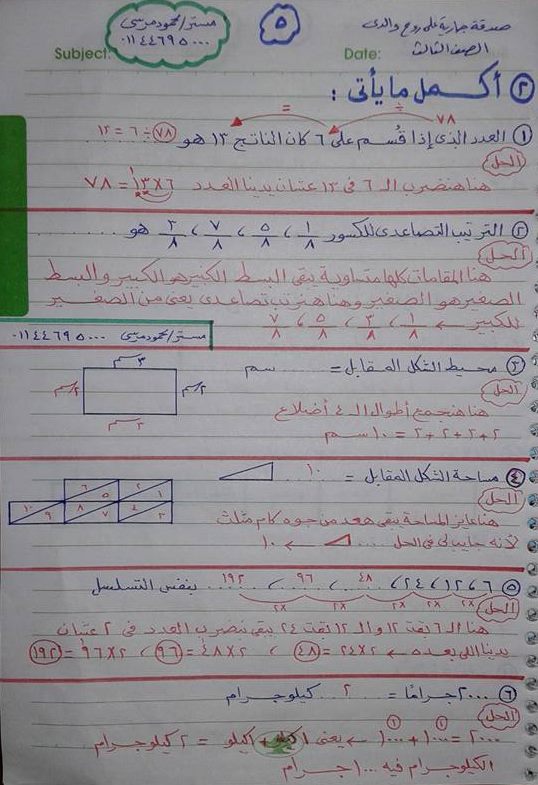 صدقة جارية على روح والدى
الصف الثالث
٥
مستر/محمود مرسى
٠١١٤٤٦٩٥٠٠٠
Subject:
Date:
٢ أكمل ما يأتى :
٧٨ ÷ =
١ العدد الذى إذا قُسم على ٦ كان الناتج ١٣ هو ٧٨ ÷ ٦ = ١٣
الحل
هنا هنضرب الـ ٦ فى ١٣ عشان يدينا العدد ١٣ × ٦ = ٧٨
٢ الترتيب التصاعدى للكسور ١/٨ ، ٥/٨ ، ٧/٨ ، ٣/٨ هو
الحل
هنا المقامات كلها متساوية يبقى البسط الكبير هو الكبير والبسط
الصغير هو الصغير وهنا هنرتب تصاعدى يعنى من الصغير
للكبير ← ١/٨ ، ٣/٨ ، ٥/٨ ، ٧/٨
مستر/محمود مرسى ٠١١٤٤٦٩٥٠٠٠
٣ محيط الشكل المقابل = ........ سم
٣سم
٢سم
٢سم
٣سم
الحل
هنا هنجمع أطوال الـ ٤ أضلاع
٢ + ٣ + ٢ + ٣ = ١٠ سم
٤ مساحة الشكل المقابل = ١٠
٦ ٥ ٢ ١
١٠ ٩ ٨ ٧ ٤ ٣
الحل
هنا عايز المساحة يبقى هعد من جوه كام مثلث
لأنه جايبلى فى الحل .... ← ١٠
٥ ٦ ، ١٢ ، ٢٤ ، ٤٨ ، ٩٦ ، ١٩٢ بنفس التسلسل
×٢ ×٢ ×٢ ×٢ ×٢
الحل
هنا الـ ٦ بقت ١٢ والـ ١٢ بقت ٢٤ يبقى نضرب العدد فى ٢ عشان
يدينا اللى بعده ← ٢٤×٢ = ٤٨ ، ٤٨×٢ = ٩٦ ، ٩٦×٢ = ١٩٢
٦ ٢٠٠٠ جرامًا = ٢ كيلوجرام
الحل
٢٠٠٠ = ١٠٠٠ + ١٠٠٠ ← يعنى ١ كيلو + ١ كيلو = ٢ كيلوجرام
الكيلوجرام فيه ١٠٠٠ جرام